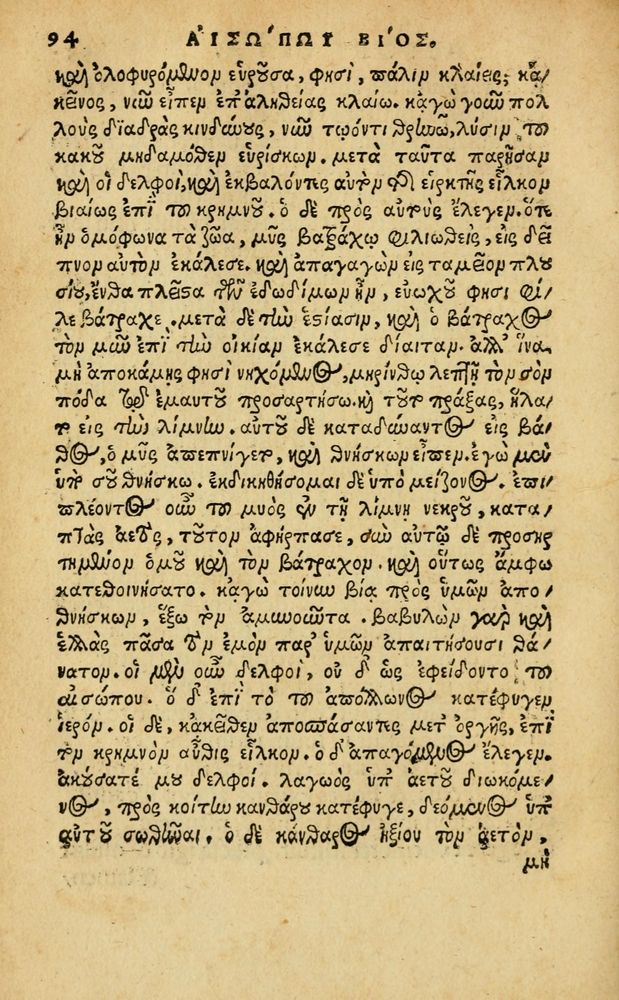 94 ΑΙΣΩ΄ΠΟΥ ΒΙ΄ΟΣ.
καὶ ὀλοφυρόμενον εὑροῦσα, φησὶ, πάλιν κλαίεις; κἀ/
κεῖνος, νῦν εἶπεν ἐπ' ἀληθείας κλαίω. κᾀγὼ γοῦν πολ
λοὺς διαδρὰς κινδύνους, νῦν τῷόντι θρηνῶ, λύσιν τοῦ
κακοῦ μηδαμόθεν εὑρίσκων. μετὰ ταῦτα παρῆσαν
καὶ οἱ δελφοὶ, καὶ ἐκβαλόντες αὐτὸν τῆς εἱρκτῆς εἷλκον
βιαίως ἐπὶ τοῦ κρημνοῦ. ὁ δὲ πρὸς αὐτοὺς ἔλεγεν. ὅτε
ἦν ὁμόφωνα τὰ ζῶα, μῦς βατράχῳ φιλιωθεὶς, εἰς δεῖ
πνον αὐτὸν ἐκάλεσε. καὶ ἀπαγαγὼν εἰς ταμεῖον πλου
σίου, ἔνθα πλεῖστα τῶν ἐδωδίμων ἦν, εὐωχοῦ φησι φί/
λε βάτραχε. μετὰ δὲ τὴν ἑστίασιν, καὶ ὁ βάτραχος
τὸν μῦν ἐπὶ τὴν οἰκίαν ἐκάλεσε δίαιταν. ἀλλ' ἵνα
μὴ ἀποκάμῃς φησὶ νηχόμενος, μηρίνθῳ λεπτῇ τὸν σὸν
πόδα τῷ ἐμαυτοῦ προσαρτήσω. καὶ τοῦτο πράξας, ἥλα/
το εἰς τὴν λίμνην. αὐτοῦ δὲ καταδύναντος εἰς βά/
θος, ὁ μῦς ἀπεπνίγετο, καὶ θνήσκων εἶπεν. ἐγὼ μὲν
ὑπὸ σοῦ θνήσκω. ἐκδικηθήσομαι δὲ ὑπὸ μείζονος. ἐπι/
πλέοντος οὖν τοῦ μυὸς ἐν τῇ λίμνῃ νεκροῦ, κατα/
πτὰς ἀετὸς, τοῦτον ἀφήρπασε, σὺν αὐτῷ δὲ προσηρ
τημένον ὁμοῦ καὶ τὸν βάτραχον. καὶ οὕτως ἄμφω
κατεθοινήσατο. κᾀγὼ τοίνυν βίᾳ πρὸς ὑμῶν ἀπο/
θνήσκων, ἕξω τὸν ἀμυνοῦντα. βαβυλὼν γὰρ καὶ
ἑλλὰς πᾶσα τὸν ἐμὸν παρ' ὑμῶν ἀπαιτήσουσι θά/
νατον. οἱ μὲν οὖν δελφοὶ, οὐ δ' ὡς ἐφείδοντο τοῦ
αἰσώπου. ὁ δ' ἐπὶ τὸ τοῦ ἀπόλλωνος κατέφυγεν
ἱερόν. οἱ δὲ, κἀκεῖθεν ἀποσπάσαντες μετ' ὀργῆς, ἐπὶ
τὸν κρημνὸν αὖθις εἷλκον. ὁ δ' ἀπαγόμενος ἔλεγεν.
ἀκούσατέ μου δελφοί. λαγωὸς ὑπ' ἀετοῦ διωκόμε/
νος, πρὸς κοίτην κανθάρου κατέφυγε, δεόμενος ὑπ'
αὐτοῦ σωθῆναι. ὁ δὲ κάνθαρος ἠξίου τὸν ἀετὸν,
μὴ